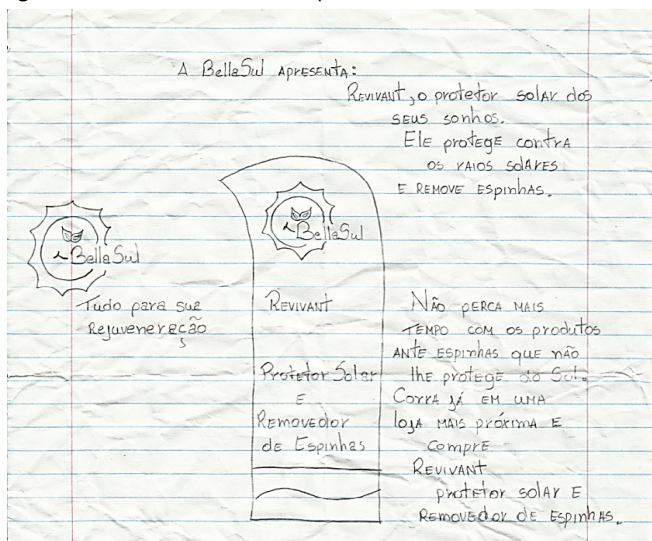 A BellaSul APRESENTA:
REVIVANT, o protetor solar dos
seus sonhos.
Ele protege contra
os raios solares
E REMOVE Espinhas.
BellaSul
Tudo para sua
Rejuveneração
BellaSul
REVIVANT
Protetor Solar
E
Removedor
de Espinhas
Não perca mais
tempo com os produtos
ante espinhas que não
lhe protege do Sol.
Corra já em uma
loja mais próxima e
compre
Revivant
protetor solar e
Removedor de Espinhas.